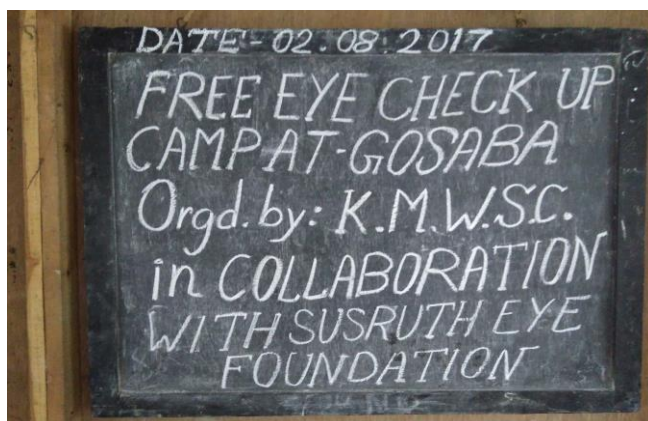 DATE-02.08.2017
FREE EYE CHECK UP
CAMP AT-GOSABA
Orgd. by: K.M.W.S.C.
in COLLABORATION
WITH SUSRUTH EYE
FOUNDATION